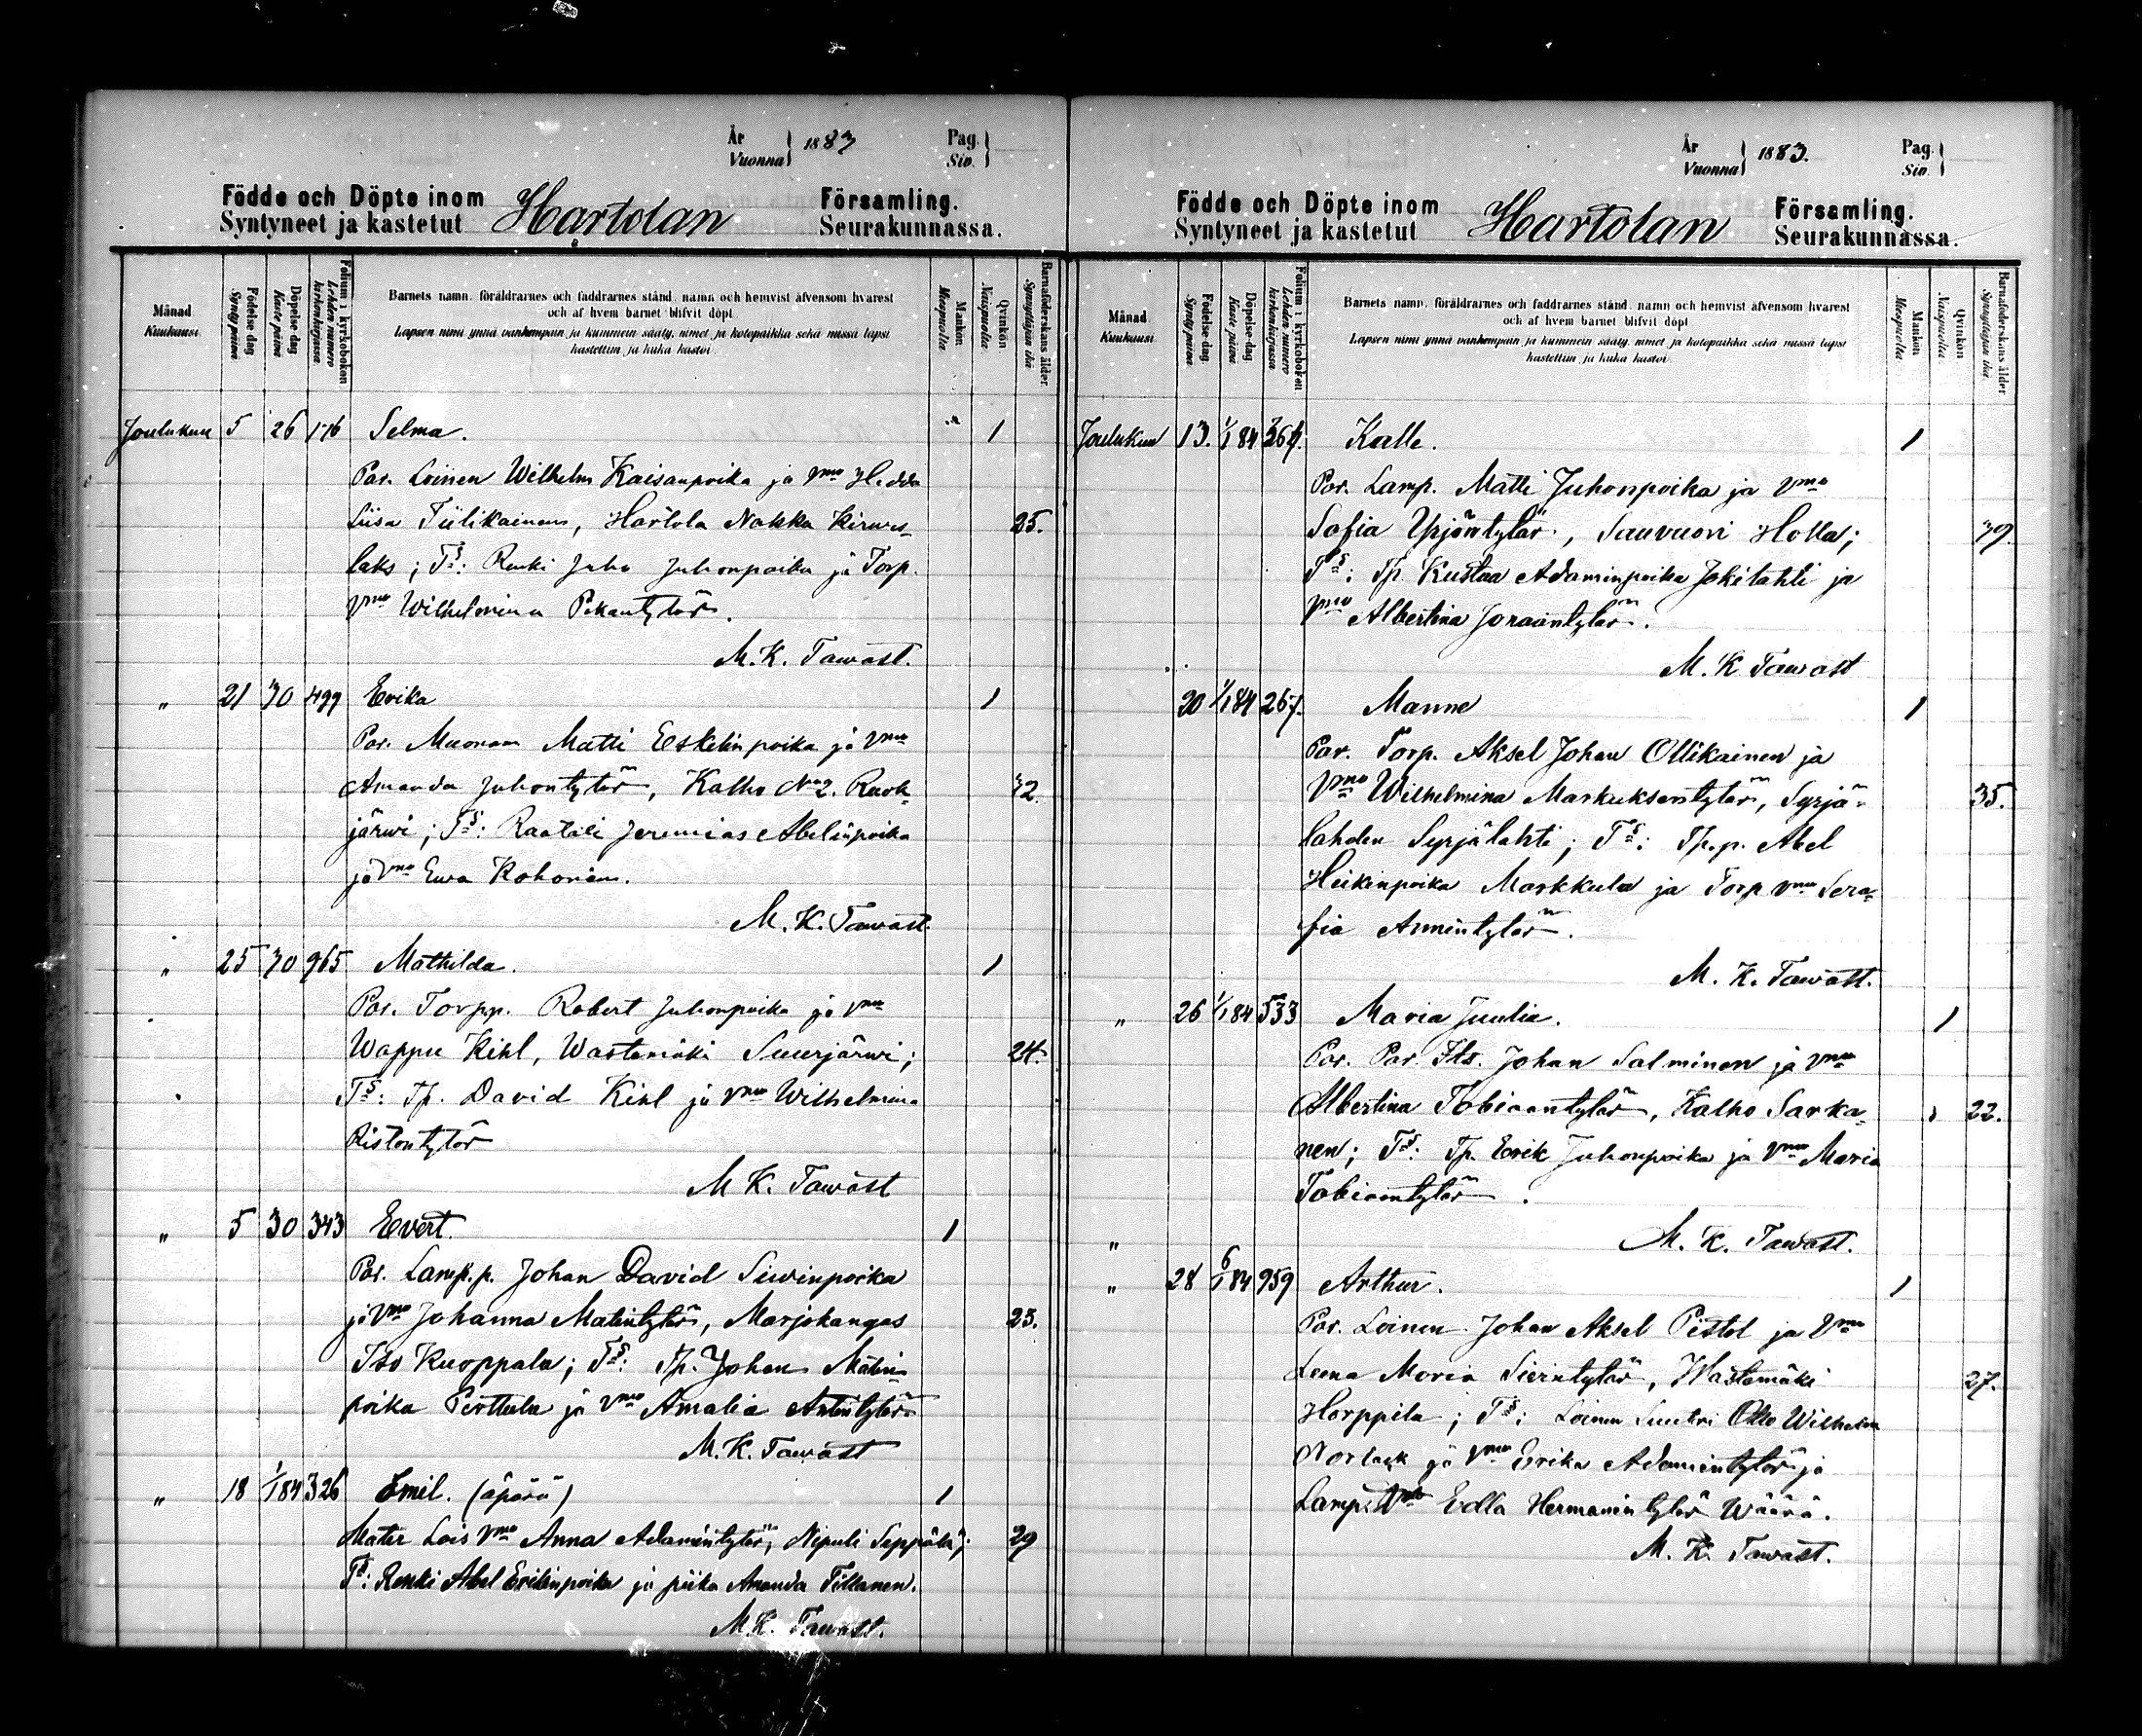 År
Vuonna } 1883 Pag.
Siv. }
Födde och Döpte inom
Syntyneet ja kastetut Hartolan Församling.
Seurakunnassa.
Månad
Kuukausi
Födelse-dag
Synty päivä
Döpelse-dag
Kaste päivä
Folium i kyrkoboken
Lehden numero kirkonkirjassa
Barnets namn, föräldrarnes och faddrarnes stånd, namn och hemvist äfvensom hvarest
och af hvem barnet blifvit döpt.
Lapsen nimi ynnä vanhempain ja kummein sääty, nimet ja kotopaikka sekä missä lapsi
kastettiin ja kuka kastoi.
Mankön
Miespuolia
Qvinkön
Naispuolia
Barnaföderskans ålder
Synnyttäjän ikä
Joulukuu 5 26 176 Selma. 1
Par. Loinen Wilhelm Kaisanpoika ja vmo Hedda
Liisa Tiilikainen, Hartola Nokka Kirves- 25.
laks; T§: Renki Juho Juhonpoika ja Torp.
vmo Wilhelmina Pekantytär.
M. K. Tawast.
" 21 30 499 Erika 1
Par. Muonam Matti Eskelinpoika ja vmo
Amanda Juhontytär, Kalho No 2. Ruok- 32.
järwi; T§: Räätäli Jeremias Abelinpoika
ja vmo Ewa Kohonen.
M. K. Tawast.
" 25 30 965 Mathilda. 1
Par. Torpp. Robert Juhonpoika ja vmo
Wappu Kihl, Wastamäki Suurjärwi; 24.
T§: Tp. David Kihl ja vmo Wilhelmina
Ristontytär
M K. Tawast
" 5 30 343 Evert. 1
Par. Lamp.p. Johan David Siwinpoika
ja vmo Johanna Matintytär, Marjokangas 23.
Iso Kuoppala; T§: Tp. Johan Matin-
poika Perttula ja vmo Amalia Antintytär
M. K. Tawast
" 18 1/1 84 326 Emil. (äpärä) 1
Mater Lois vmo Anna Adamintytär, Nipuli Seppälä; 29
T§: Renki Abel Erikinpoika ja piika Amanda Tillanen.
M. K. Tawast.
År
Vuonna } 1883. Pag.
Siv. }
Födde och Döpte inom
Syntyneet ja kastetut Hartolan Församling.
Seurakunnassa.
Månad
Kuukausi
Födelse-dag
Synty päivä
Döpelse-dag
Kaste päivä
Folium i kyrkoboken
Lehden numero kirkonkirjassa
Barnets namn, föräldrarnes och faddrarnes stånd, namn och hemvist äfvensom hvarest
och af hvem barnet blifvit döpt.
Lapsen nimi ynnä vanhempain ja kummein sääty, nimet ja kotopaikka sekä missä lapsi
kastettiin ja kuka kastoi.
Mankön
Miespuolia
Qvinkön
Naispuolia
Barnaföderskans ålder
Synnyttäjän ikä
Joulukuu 13. 1/1 84 Kalle. 1
Par. Lamp. Matti Juhonpoika ja vmo
Sofia Yrjöntytär, Sauvuori Holla; 39.
T§: Tp. Kustaa Adaminpoika Jokilahti ja
vmo Albertina Joraantytär.
M. K Tawast
20 1/1 84 267. Manne 1
Par. Torp. Aksel Johan Ollikainen ja
Vmo Wilhelmina Markuksentytär, Syrjä- 35.
lahden Syrjälahti; T§: Tp.p. Abel
Heikinpoika Markkula ja Torp vmo Sera-
fia Armintytär.
M. K. Tawast.
" 26 1/1 84 533 Maria Juulia. 1
Par. Par. Its. Johan Salminen ja vmo
Albertina Tobiaantytär, Kalho Sarka- 22.
nen; T§: Tp. Erik Juhonpoika ja vmo Maria
Tobiaantytär.
" M. K. Tawast.
" 28 6/1 84 959 Arthur. 1
Par. Loinen Johan Aksel Pistol ja Vmo
Leena Maria Sierintytär, Wastamäki 27.
Horppila; T§: Loinen Suutri Otto Wilhelm
Norlack ja vmo Erika Adamintytär ja
Lamp. Vmo Edla Hermanintytär Wäärä.
M. K. Tawast.